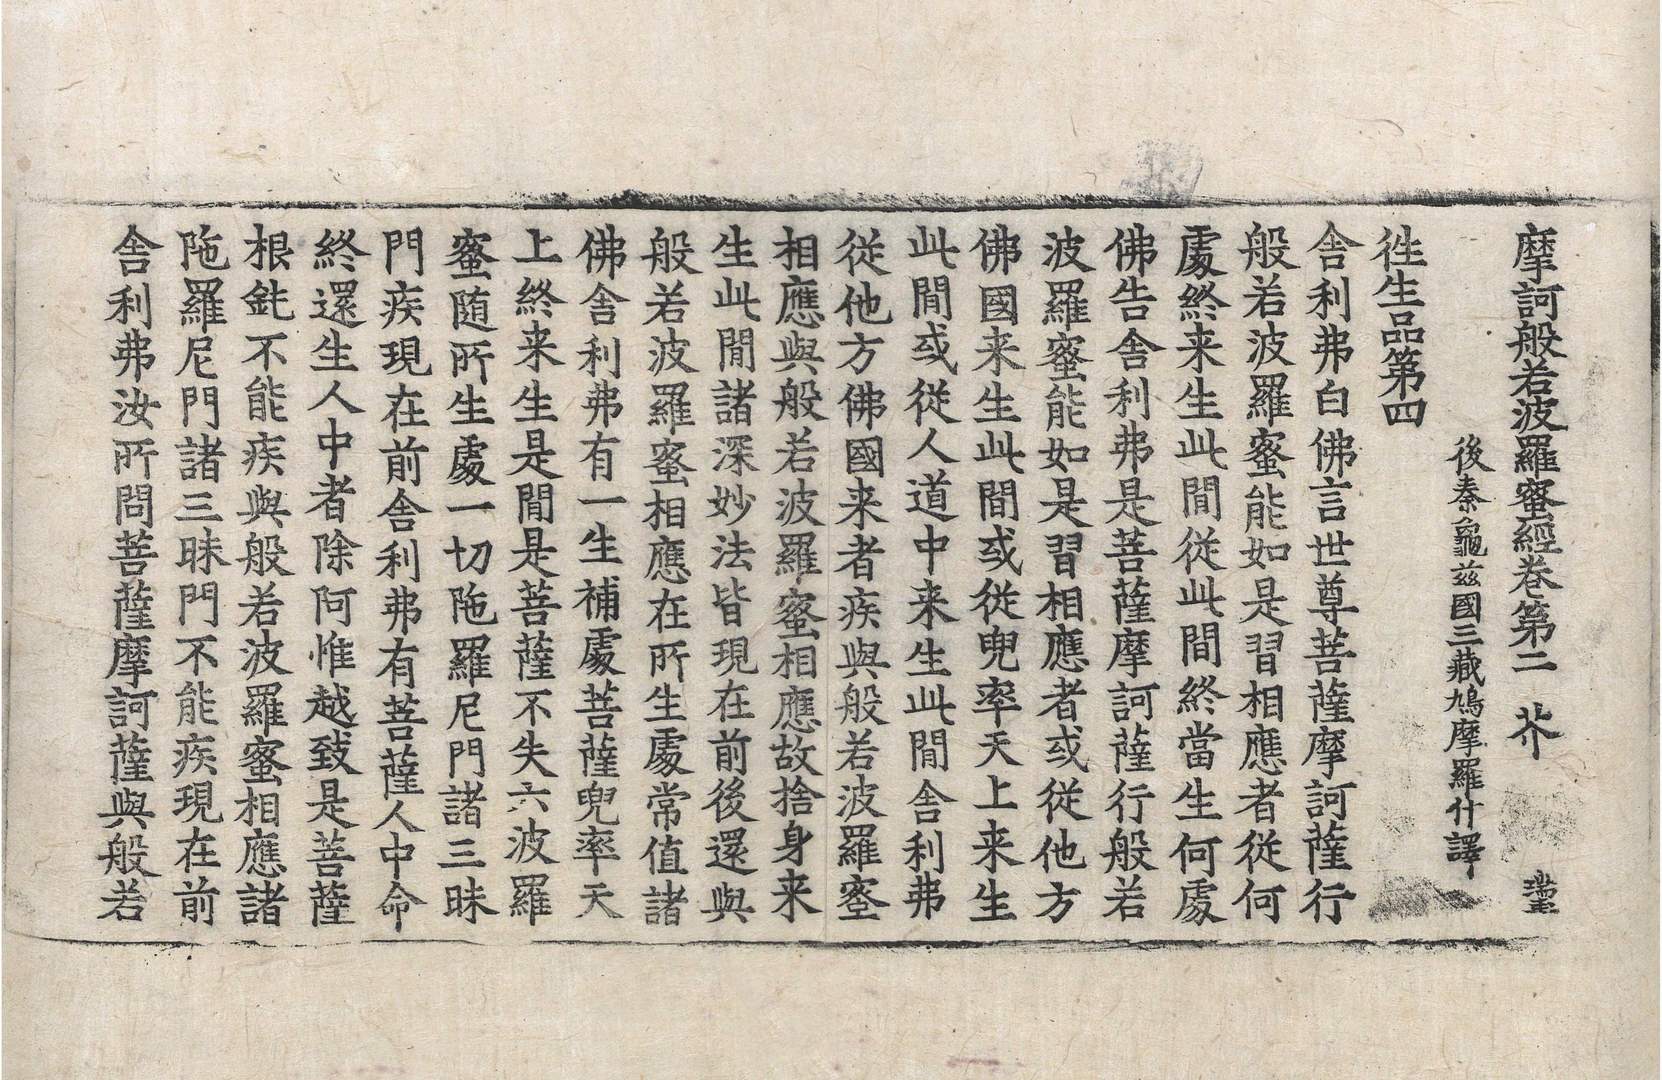 摩訶般若波羅蜜經卷第二 芥
後秦龜茲國三藏鳩摩羅什譯
徃生品第四
舍利弗白佛言世尊菩薩摩訶薩行
般若波羅蜜能如是習相應者從何
處終来生此間從此間終當生何處
佛告舍利弗是菩薩摩訶薩行般若
波羅蜜能如是習相應者或從他方
佛國来生此間或從兜率天上来生
此間或從人道中来生此間舍利弗
從他方佛國来者疾與般若波羅蜜
相應與般若波羅蜜相應故捨身来
生此間諸深妙法皆現在前後還與
般若波羅蜜相應在所生處常值諸
佛舍利弗有一生補處菩薩兜率天
上終来生是間是菩薩不失六波羅
蜜随所生處一切陁羅尼門諸三昧
門疾現在前舍利弗有菩薩人中命
終還生人中者除阿惟越致是菩薩
根鈍不能疾與般若波羅蜜相應諸
陁羅尼門諸三昧門不能疾現在前
舍利弗汝所問菩薩摩訶薩與般若